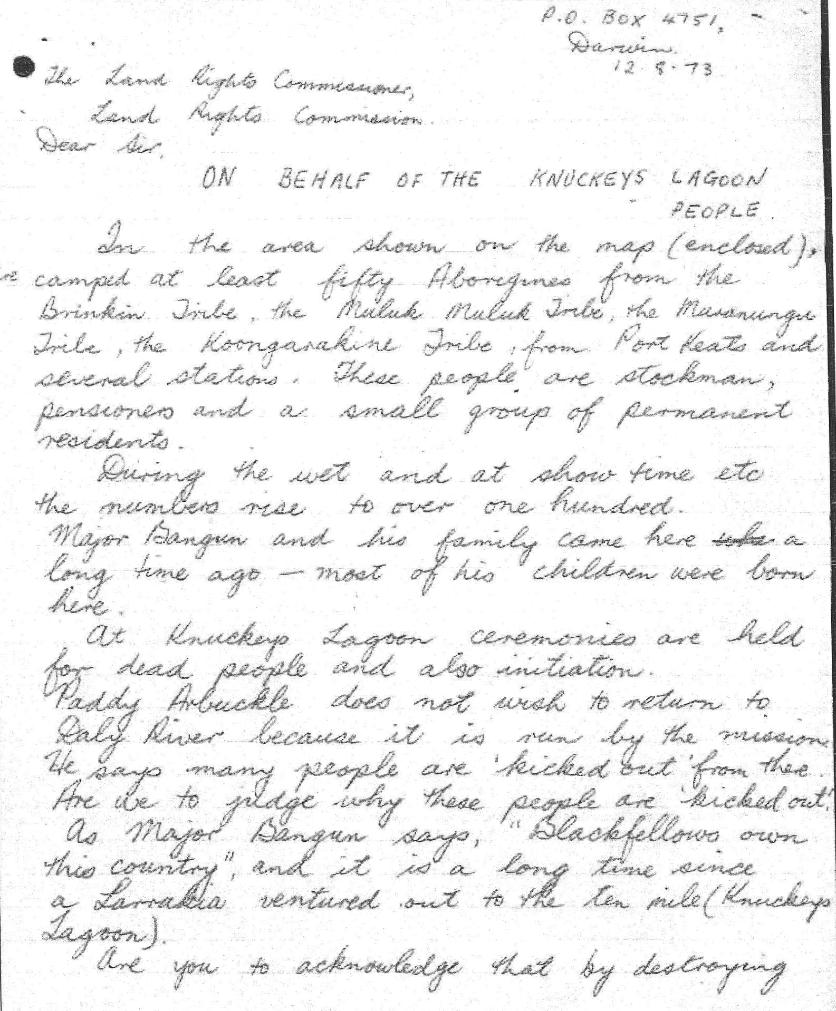 P.O. BOX 4751,
Darwin.
12.8.73
The Land Rights Commissioner,
Land Rights Commission.
Dear Sir,
ON BEHALF OF THE KNUCKEYS LAGOON
PEOPLE.
In the area shown on the map (enclosed),
camped at least fifty Aborigines from the
Brinkin Tribe, the Muluk Muluk Tribe, the
Tribe, the Koongarakine Tribe, from Port Keats and
several stations. These people are stockman,
pensioners and a small group of permanent
residents.
During the wet and at show time etc
the numbers rise to over one hundred.
Major Bangun and his family came here a
long time ago – most of his children were born
here.
At Knuckeys Lagoon ceremonies are held
for dead people and also initiation.
Paddy Arbuckle does not wish to return to
Daly River because it is run by the mission
He says many people are 'kicked out' from there.
Are we to judge why these people are 'kicked out'.
As Major Bangun says, "Blackfellows own
this country", and it is a long time since
a Larrakia ventured out to the ten mile (Knuckeys
Lagoon).
Are you to acknowledge that by destroying